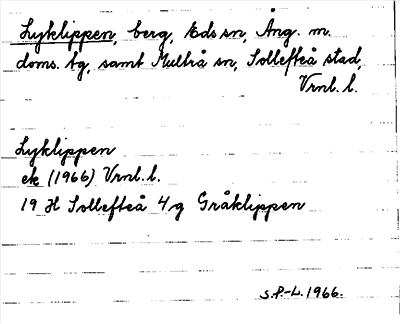 Lyklippen, berg, Eds sn, Ång. m.
doms. tg, samt Multrå sn, Sollefteå stad,
Vrnl. l.
Lyklippen
ek (1966) Vrnl. l.
19 H Sollefteå 4g Gråklippen
S.P.-L. 1966.